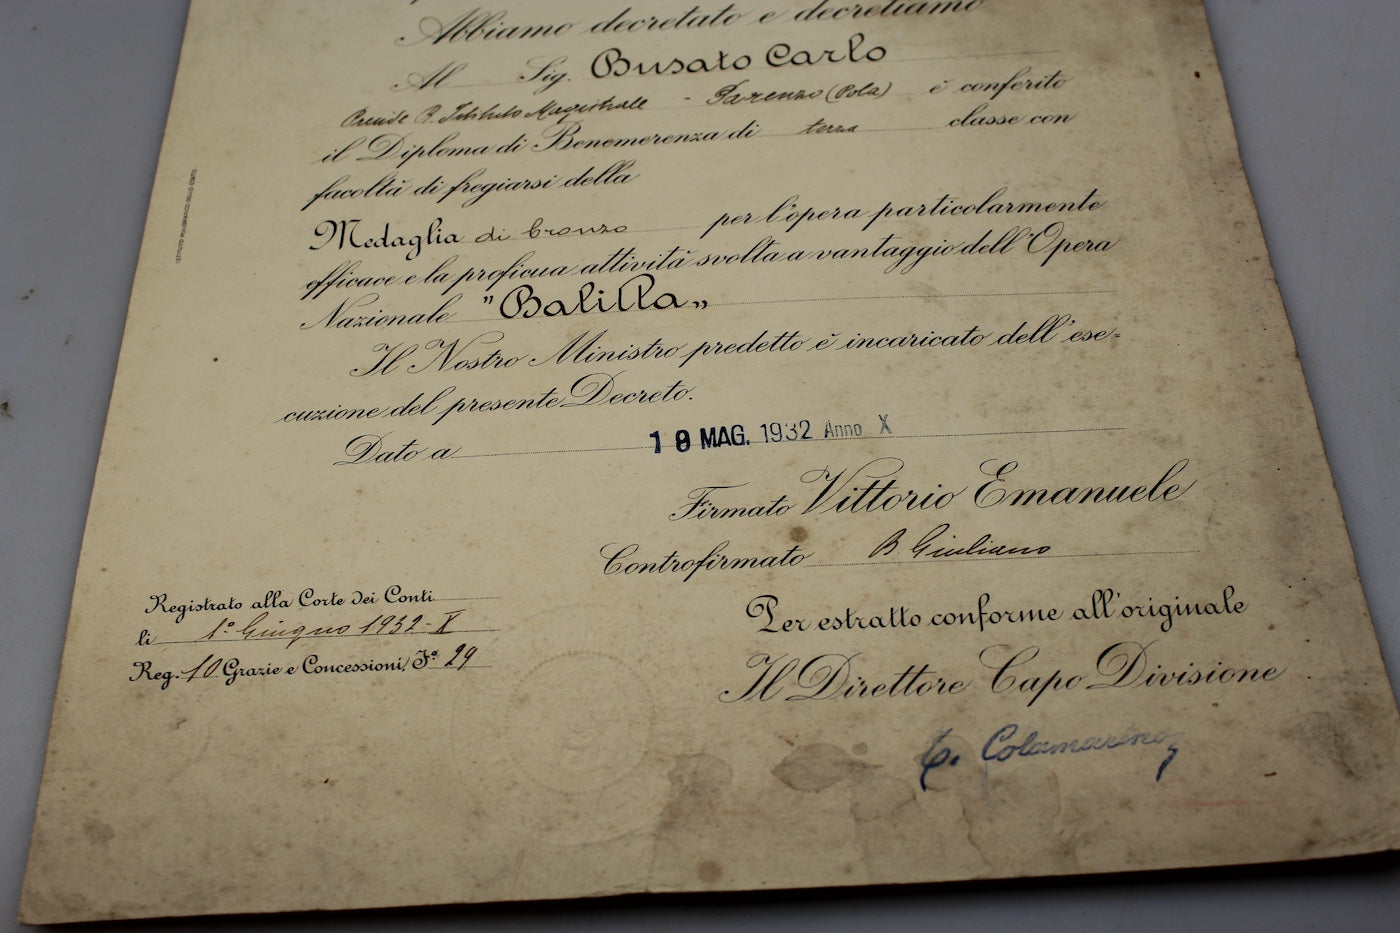 Abbiamo decretato e decretiamo
Al Sig. Busato Carlo
Preside R. Istituto Magistrale - Parenzo (Pola) è conferito
il Diploma di Benemerenza di terza classe con
facoltà di fregiarsi della
Medaglia di bronzo per l'opera particolarmente
efficace e la proficua attività svolta a vantaggio dell'Opera
Nazionale "Balilla„
Il Nostro Ministro predetto è incaricato dell'ese=
cuzione del presente Decreto.
Dato a 19 MAG. 1932 Anno X
Firmato Vittorio Emanuele
Controfirmato B. Giuliano
Registrato alla Corte dei Conti
li 1° Giugno 1932-X
Reg. 10 Grazie e Concessioni, F.° 29
Per estratto conforme all'originale
Il Direttore Capo Divisione
Colamarino
ISTITUTO POLIGRAFICO DELLO STATO